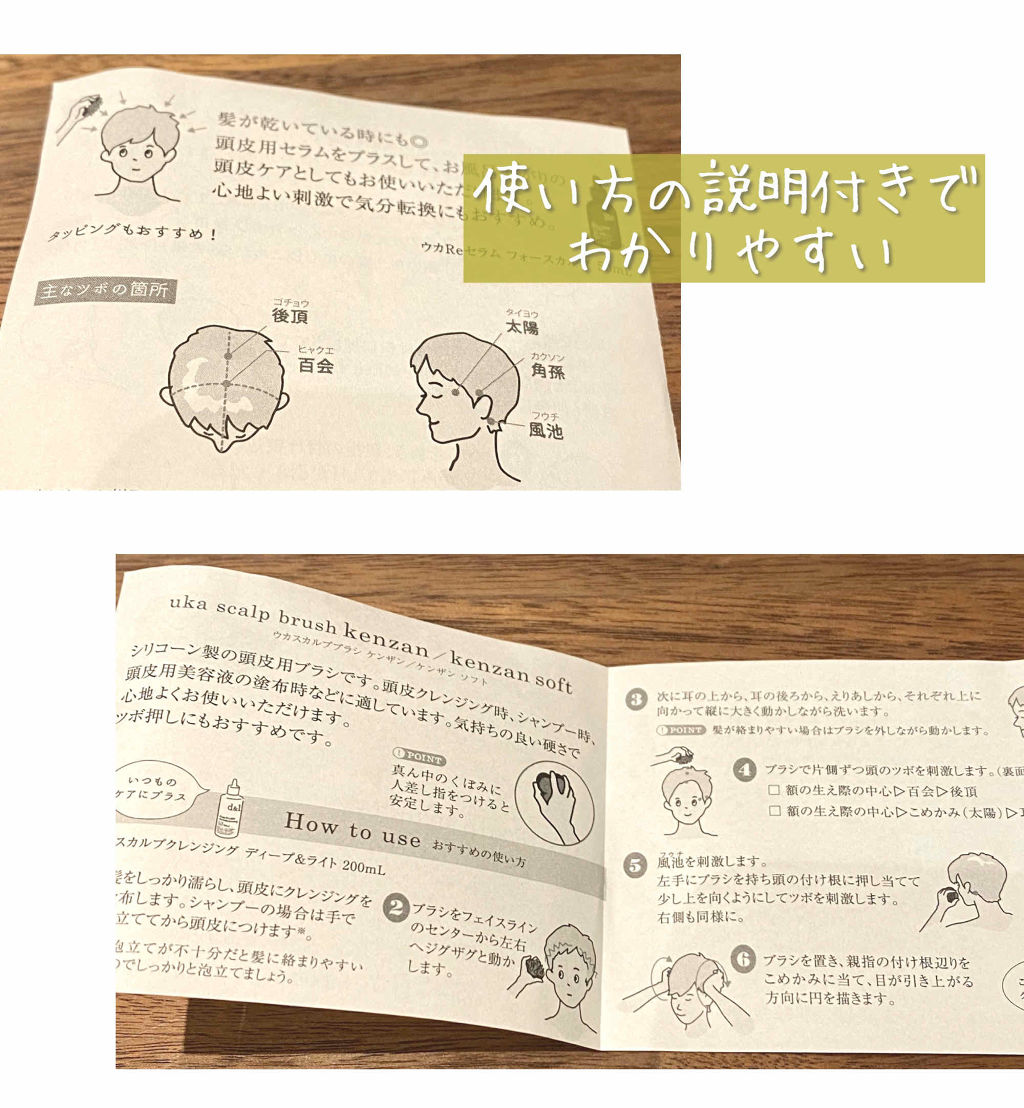 髪が乾いている時にも◎
頭皮用セラムをプラスして、お風
頭皮ケアとしてもお使いいただ
心地よい刺激で気分転換にもおすすめ。
使い方の説明付きで
わかりやすい
タッピングもおすすめ！
ウカReセラム フォースカ
主なツボの箇所
ゴチョウ
後頂
ヒャクエ
百会
タイヨウ
太陽
カクソン
角孫
フウチ
風池
uka scalp brush kenzan／kenzan soft
ウカスカルプブラシ ケンザン／ケンザン ソフト
シリコーン製の頭皮用ブラシです。頭皮クレンジング時、シャンプー時、
頭皮用美容液の塗布時などに適しています。気持ちの良い硬さで
心地よくお使いいただけます。
ツボ押しにもおすすめです。
! POINT
真ん中のくぼみに
人差し指をつけると
安定します。
いつもの
ケアにプラス
d&l
How to use おすすめの使い方
スカルプクレンジング ディープ&ライト 200mL
髪をしっかり濡らし、頭皮にクレンジングを
布します。シャンプーの場合は手で
立ててから頭皮につけます※。
泡立てが不十分だと髪に絡まりやすい
のでしっかりと泡立てましょう。
2 ブラシをフェイスライン
のセンターから左右
へジグザグと動か
します。
3 次に耳の上から、耳の後ろから、えりあしから、それぞれ上に
向かって縦に大きく動かしながら洗います。
! POINT 髪が絡まりやすい場合はブラシを外しながら動かします。
4 ブラシで片側ずつ頭のツボを刺激します。（裏面
□ 額の生え際の中心▷百会▷後頂
□ 額の生え際の中心▷こめかみ（太陽）▷
フウチ
5 風池を刺激します。
左手にブラシを持ち頭の付け根に押し当てて
少し上を向くようにしてツボを刺激します。
右側も同様に。
6 ブラシを置き、親指の付け根辺りを
こめかみに当て、目が引き上がる
方向に円を描きます。